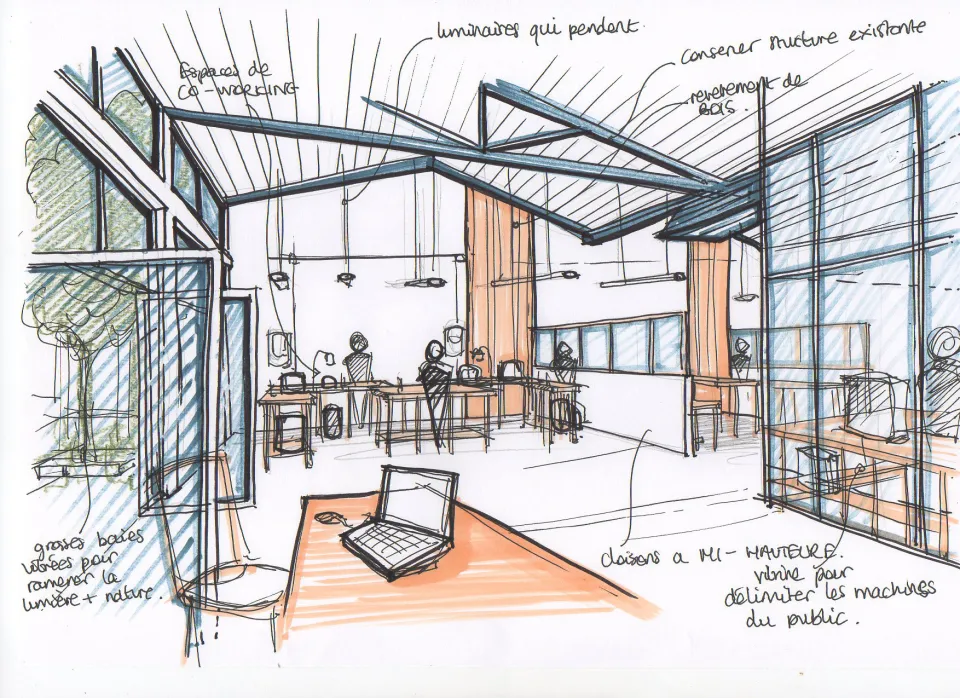 luminaires qui pendent.
conserver structure existante
Espaces de
CO-WORKING
revetement de
BOIS.
grosses baies
vitrées pour
ramener la
lumière + nature.
cloisons a MI-HAUTEUR.
vitrine pour
délimiter les machines
du public.